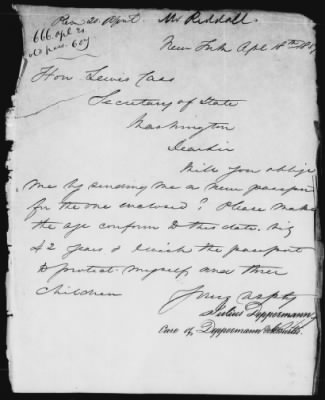 Rec 20 April Mr Riddall
666. apl 21
New York Apl 18th
Hon Lewis Cass
Secretary of State
Washington
Dear Sir
Will you oblige
me by sending me a new passport
for the one enclosed? Please make
the age conform to this date. viz
42 years & wish the passport
to protect myself, and three
children
Yours
Julius Dyppermann
Care of Dyppermann